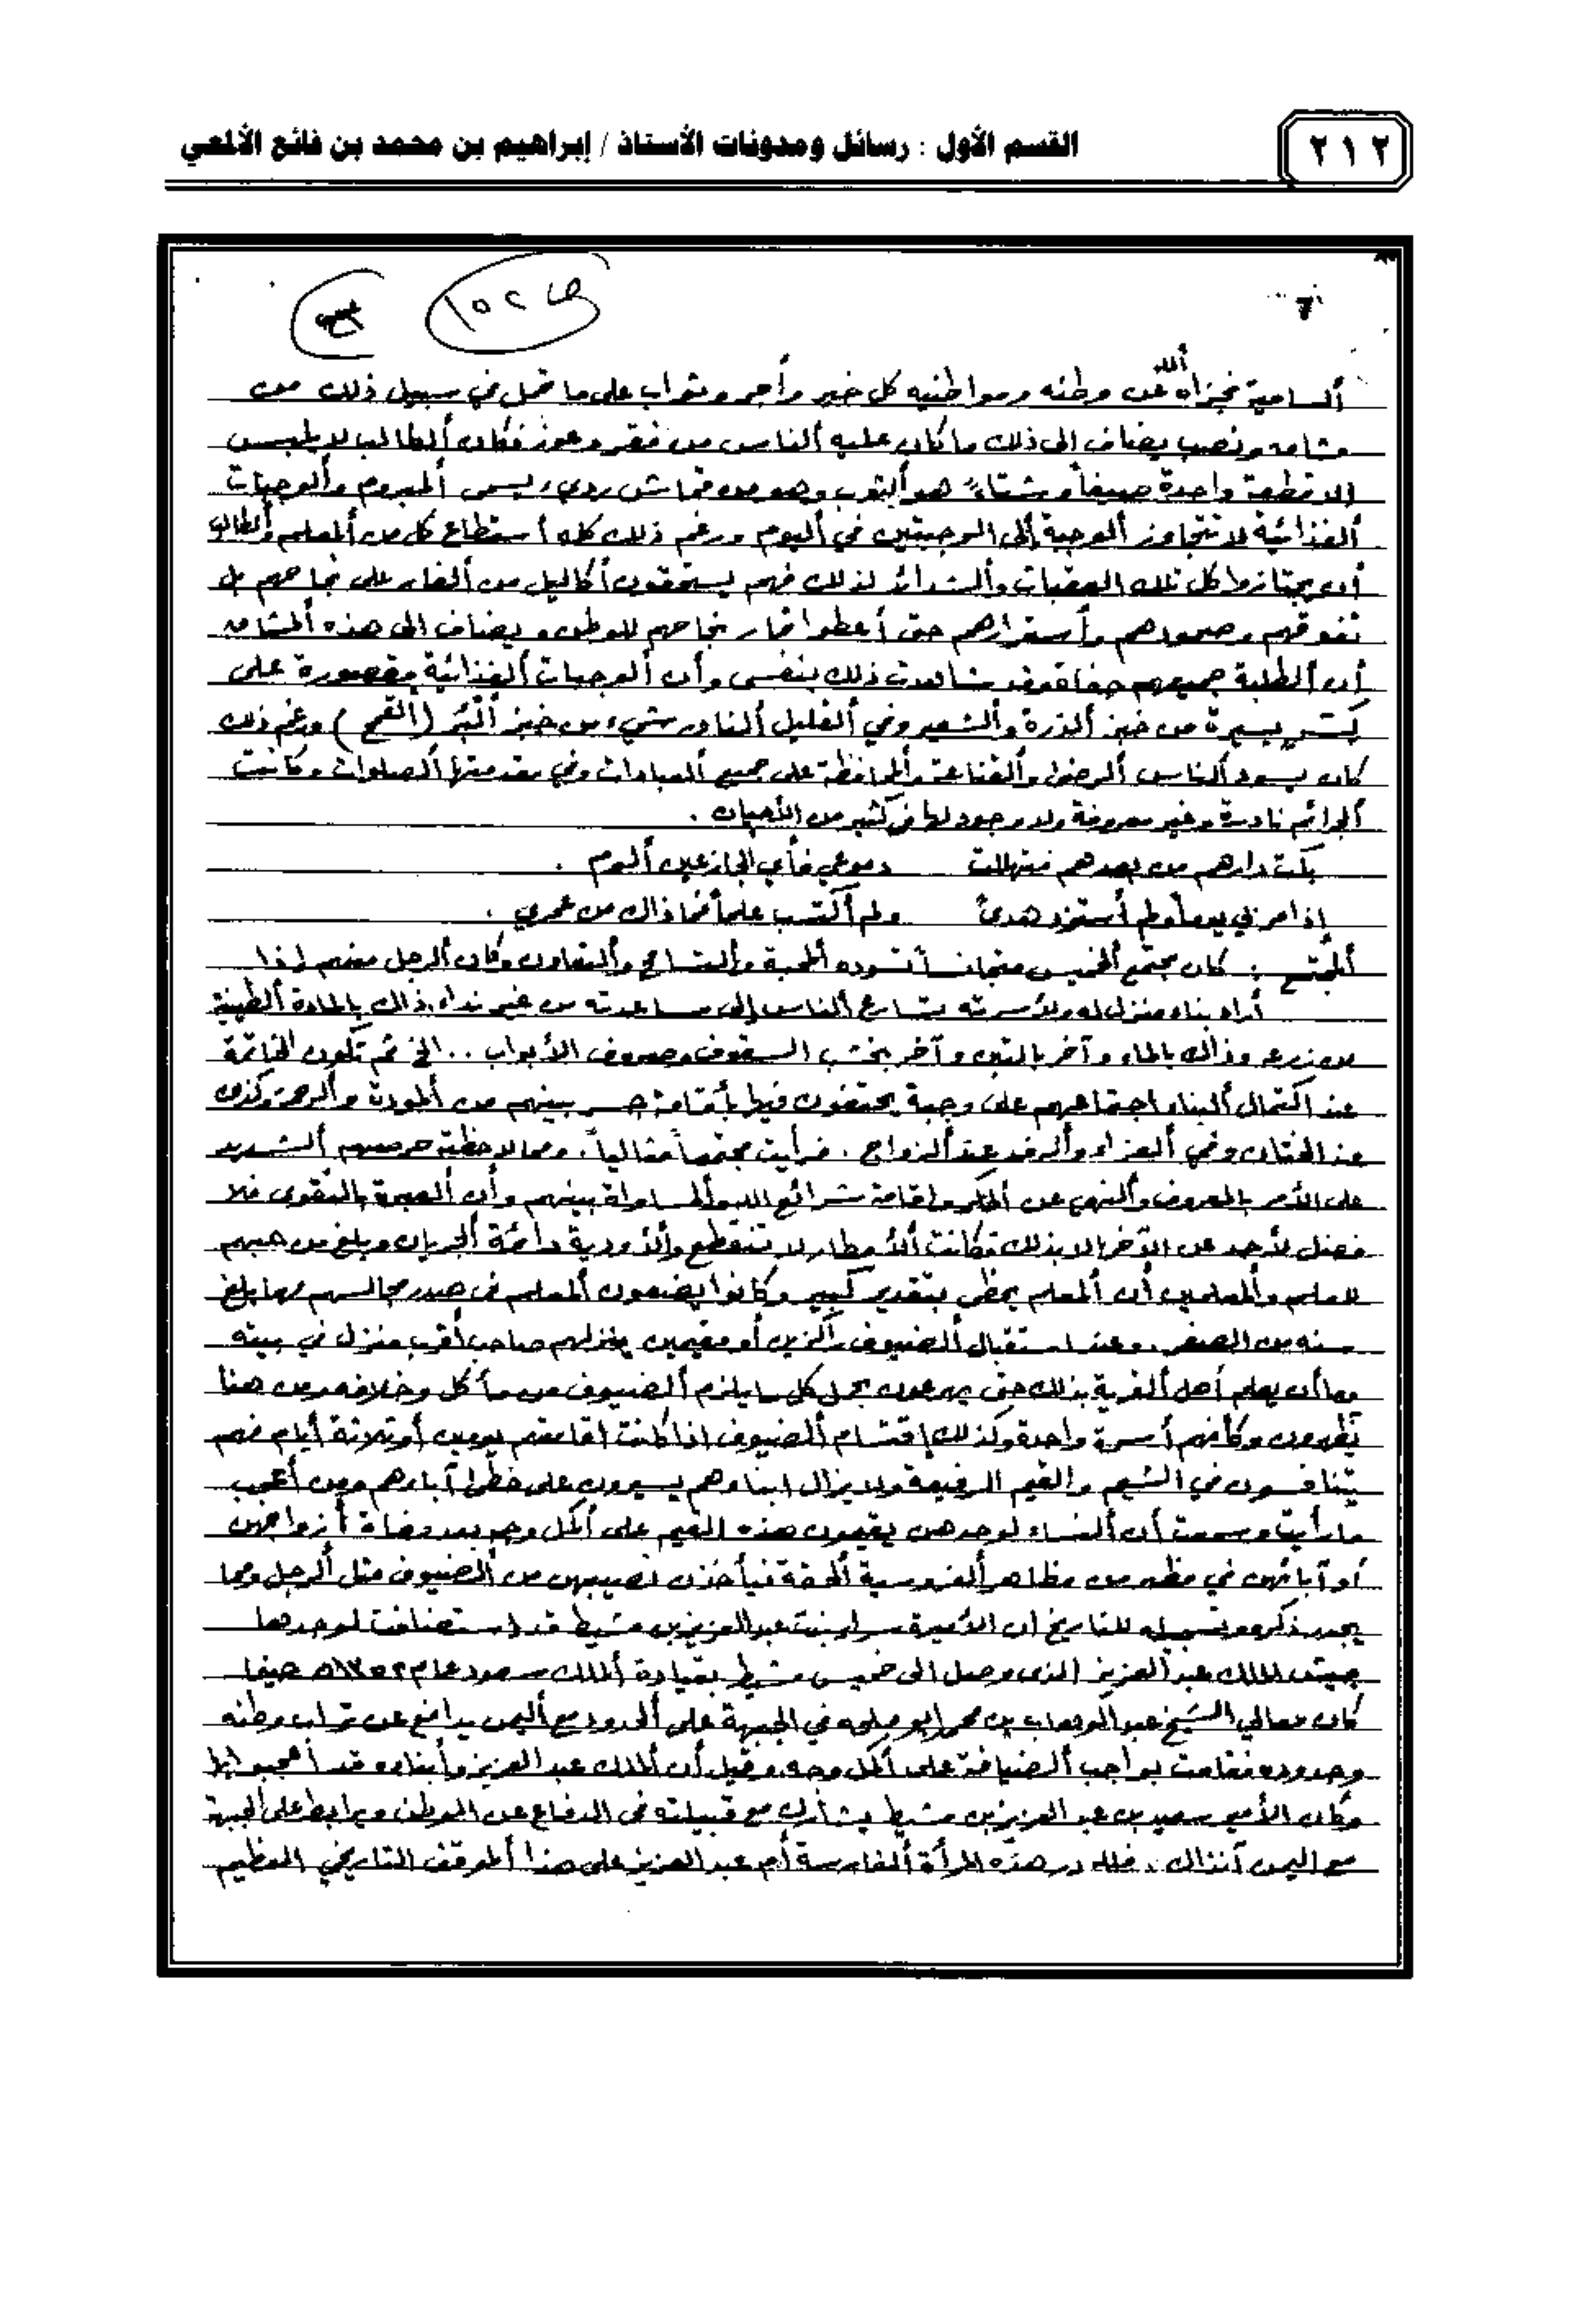 ٢١٢
القسم الأول : رسائل ومدونات الأستاذ / إبراهيم بن محمد بن فائع الألمعي
ص ١٥٢
السامية فجزاه الله عن وطنه ومواطنيه كل خير وأجر وثواب على ما تحمل في سبيل ذلك من
مشاق ونصب يضاف الى ذلك ما كان عليه الناس من فقر وعوز فكان الطالب لا يلبس
إلا قطعة واحدة صيفاً وشتاءً هو الثوب وهو من قماش رديء يسمى المبروم والوجبات
الغذائية لا تتجاوز الوجبة إلى الوجبتين في اليوم ورغم ذلك كله أستطاع كل من المعلم والطالب
أن يجتازوا كل تلك العقبات والشدائد لذلك فهم يستحقون أكاليل من الغار على نجاحهم بل
تفوقهم وصمودهم وأستمرارهم حتى أعطوا ثمار نجاحهم للوطن ويضاف الى هذه المشاق
أن الطلبة جميعهم حفاة وقد شاهدت ذلك بنفسي وأن الوجبات الغذائية مقصورة على
كِسَرٍ يسيرة من خبز الذرة والشعير وفي القليل النادر شيء من خبز البُر (القمح) ورغم ذلك
كان يسود الناس الرضى والقناعة والمحافظة على جميع العبادات وفي مقدمتها الصلوات وكانت
الجرائم نادرة وغير معروفة ولا وجود لها في كثير من الأحيان .
بكت دارهم من بعدهم فتهللت دموعي فأي الجازعين ألوم .
إذا مر بي يوماً ولم أستزد هدىً ولم أكتسب علماً فما ذاك من عمري .
المجتمع : كان مجتمع الخميس متجانساً تسوده المحبة والتسامح والتعاون وكان الرجل منهم إذا
أراد بناء منزل له ولأسرته يتسارع الناس إلى مساعدته من غير نداء ذاك بالمادة الطينية
من زرعه وذاك بالماء وآخر بالتبن وآخر بخشب السقوف وصروف الأبواب .. الخ ثم تكون الخاتمة
عند اكتمال البناء اجتماعهم على وجبة يحتفون فيها بأقامة جسر بينهم من المودة والرحمة وكذى
عند الختان وفي العزاء والرفد عند الزواج . فرأيت مجتمعاً مثالياً . ومما لاحظته حرصهم الشديد
على الأمر بالمعروف والنهي عن المنكر وإقامة شرائع الله والمساواة بينهم وأن العبرة بالتقوى فلا
فضل لأحد عن الآخر إلا بذلك فكانت الأمطار لا تنقطع والأودية دائمة الجريان وبلغ من حبهم
للعلم والمعلمين أن المعلم يحظى بتقدير كبير وكانوا يضعون المعلم في صدر مجالسهم مهما بلغ
سنه من الصغر . وعند استقبال الضيوف أو مقيمين ينزلهم صاحب أقرب منزل في بيته
وما أن يعلم أهل القرية بذلك حتى يهرعون بحمل كل ما يلزم الضيوف من مأكل وخلافه ومن هنا
يَظهرون وكأنهم أسرة واحدة وكذلك إقتسام الضيوف اذا كانت اقامتهم يومين أو ثلاثة أيام فهم
يتنافسون في الشيم والقيم الرفيعة ولا يزال ابناؤهم يسيرون على خطى آباءهم ومن أعجب
ما رأيت وسمعت أن النساء لوحدهن يقمون هذه القيم على أكمل وجه بعد وفاة أزواجهن
أو آبائهن في مظهر من مظاهر الفروسية الحقة فيأخذن نصيبهن من الضيوف مثل الرجل ومما
يجدر ذكره وتسجيله للتاريخ ان الأميرة سراء بنت عبدالعزيز بن مشيط قد إستضافت لوحدها
جيش الملك عبد العزيز الذى وصل الى خميس مشيط بقيادة الملك سعود عام ١٣٥٢هـ حينما
كان معالي الشيخ عبد الوهاب بن محمد ابو ملحه في الجبهة على الحدود مع اليمن يدافع عن تراب وطنه
وحدوده فقامت بواجب الضيافة على أكمل وجه وقيل أن الملك عبد العزيز وأبناؤه قد أعجبوا بها
وكان الأمير سعيد بن عبد العزيز بن مشيط يشارك مع قبيلته في الدفاع عن الوطن ويرابط على الجبهة
مع اليمن آنذاك . فلله در هذه المرأة الفارسة أم عبد العزيز على هذا الموقف التاريخي العظيم